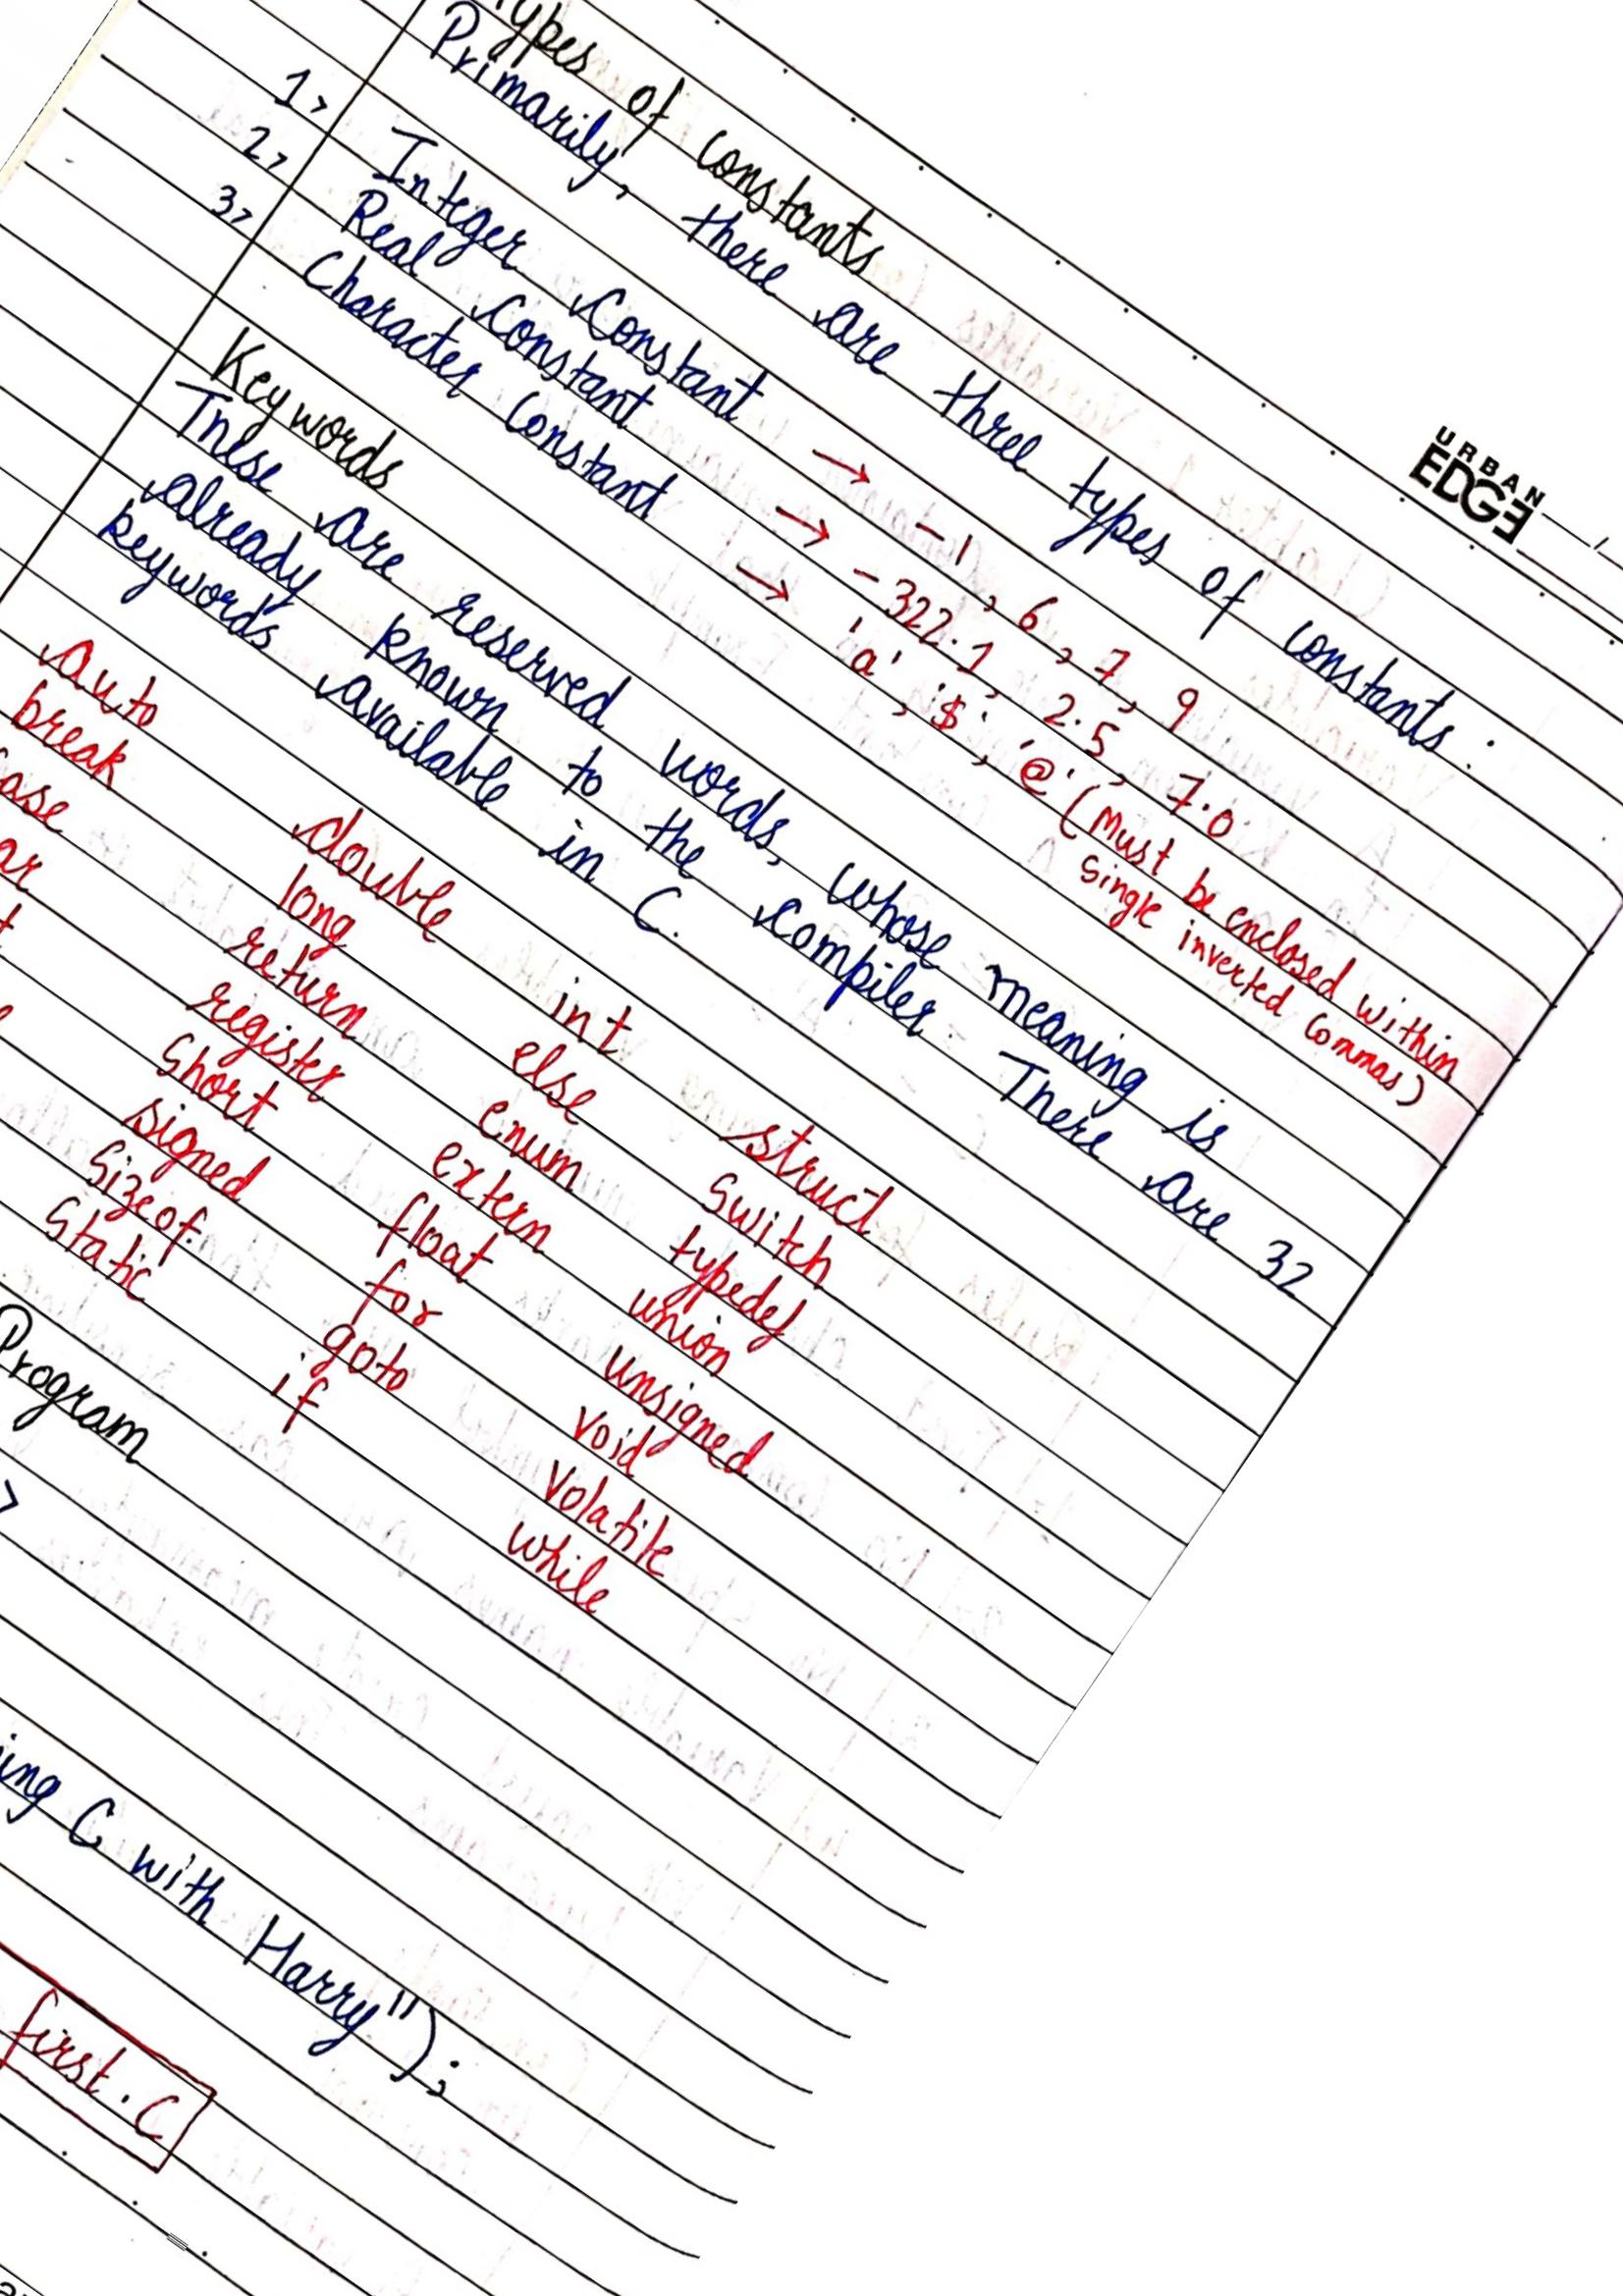 URBAN
EDGE
Types of constants
Primarily, there are three types of constants :
1> Integer Constant → -1, 6, 7, 9
2> Real Constant → -322.1, 2.5, 7.0
3> Character Constant → 'a', '$', '@' (Must be enclosed within
single inverted commas)
Keywords
These are reserved words, whose meaning is
already known to the compiler. There are 32
keywords available in C.
auto double int struct
break long else switch
return enum typedef
register extern union
short float unsigned
signed for void
sizeof goto volatile
static if while
Program
>
C with Harry");
first.C